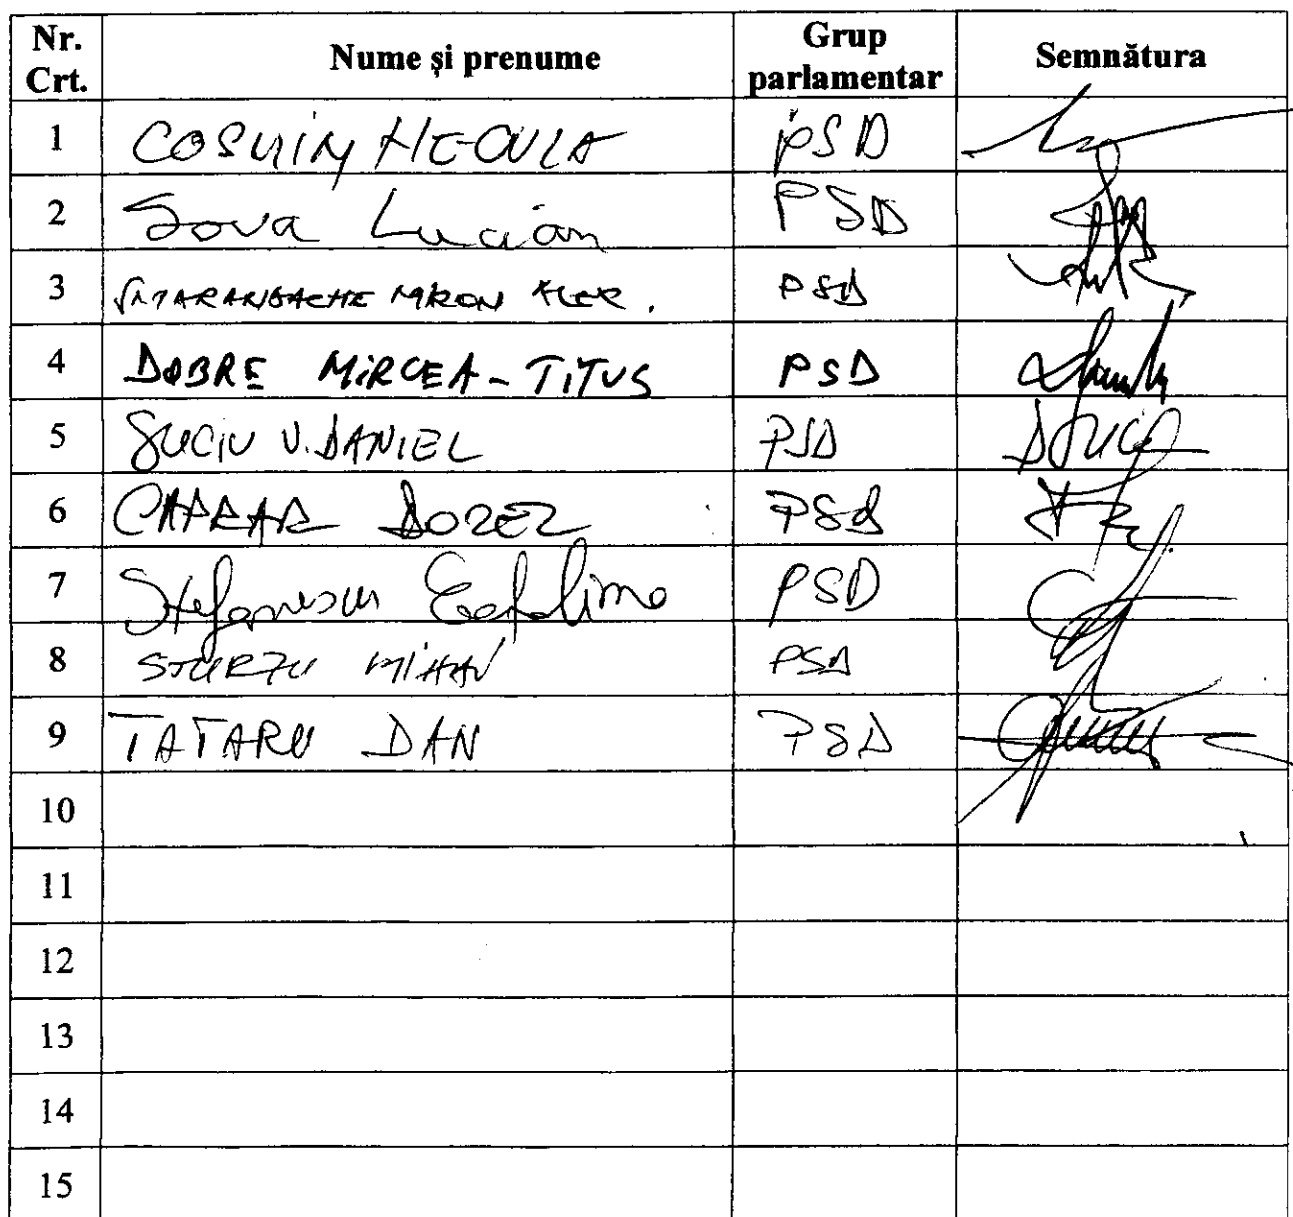 Nr. Crt. Nume și prenume Grup parlamentar Semnătura
1 COSMIN NECULA PSD
2 Sova Lucian PSD
3 MIRON ALEX. PSD
4 DOBRE MIRCEA-TITUS PSD
5 SUCIU V. DANIEL PSD
6 CAPRAR DOREL PSD
7 Stefanescu PSD
8 STURZU MIHAI PSD
9 TATARU DAN PSD
10
11
12
13
14
15